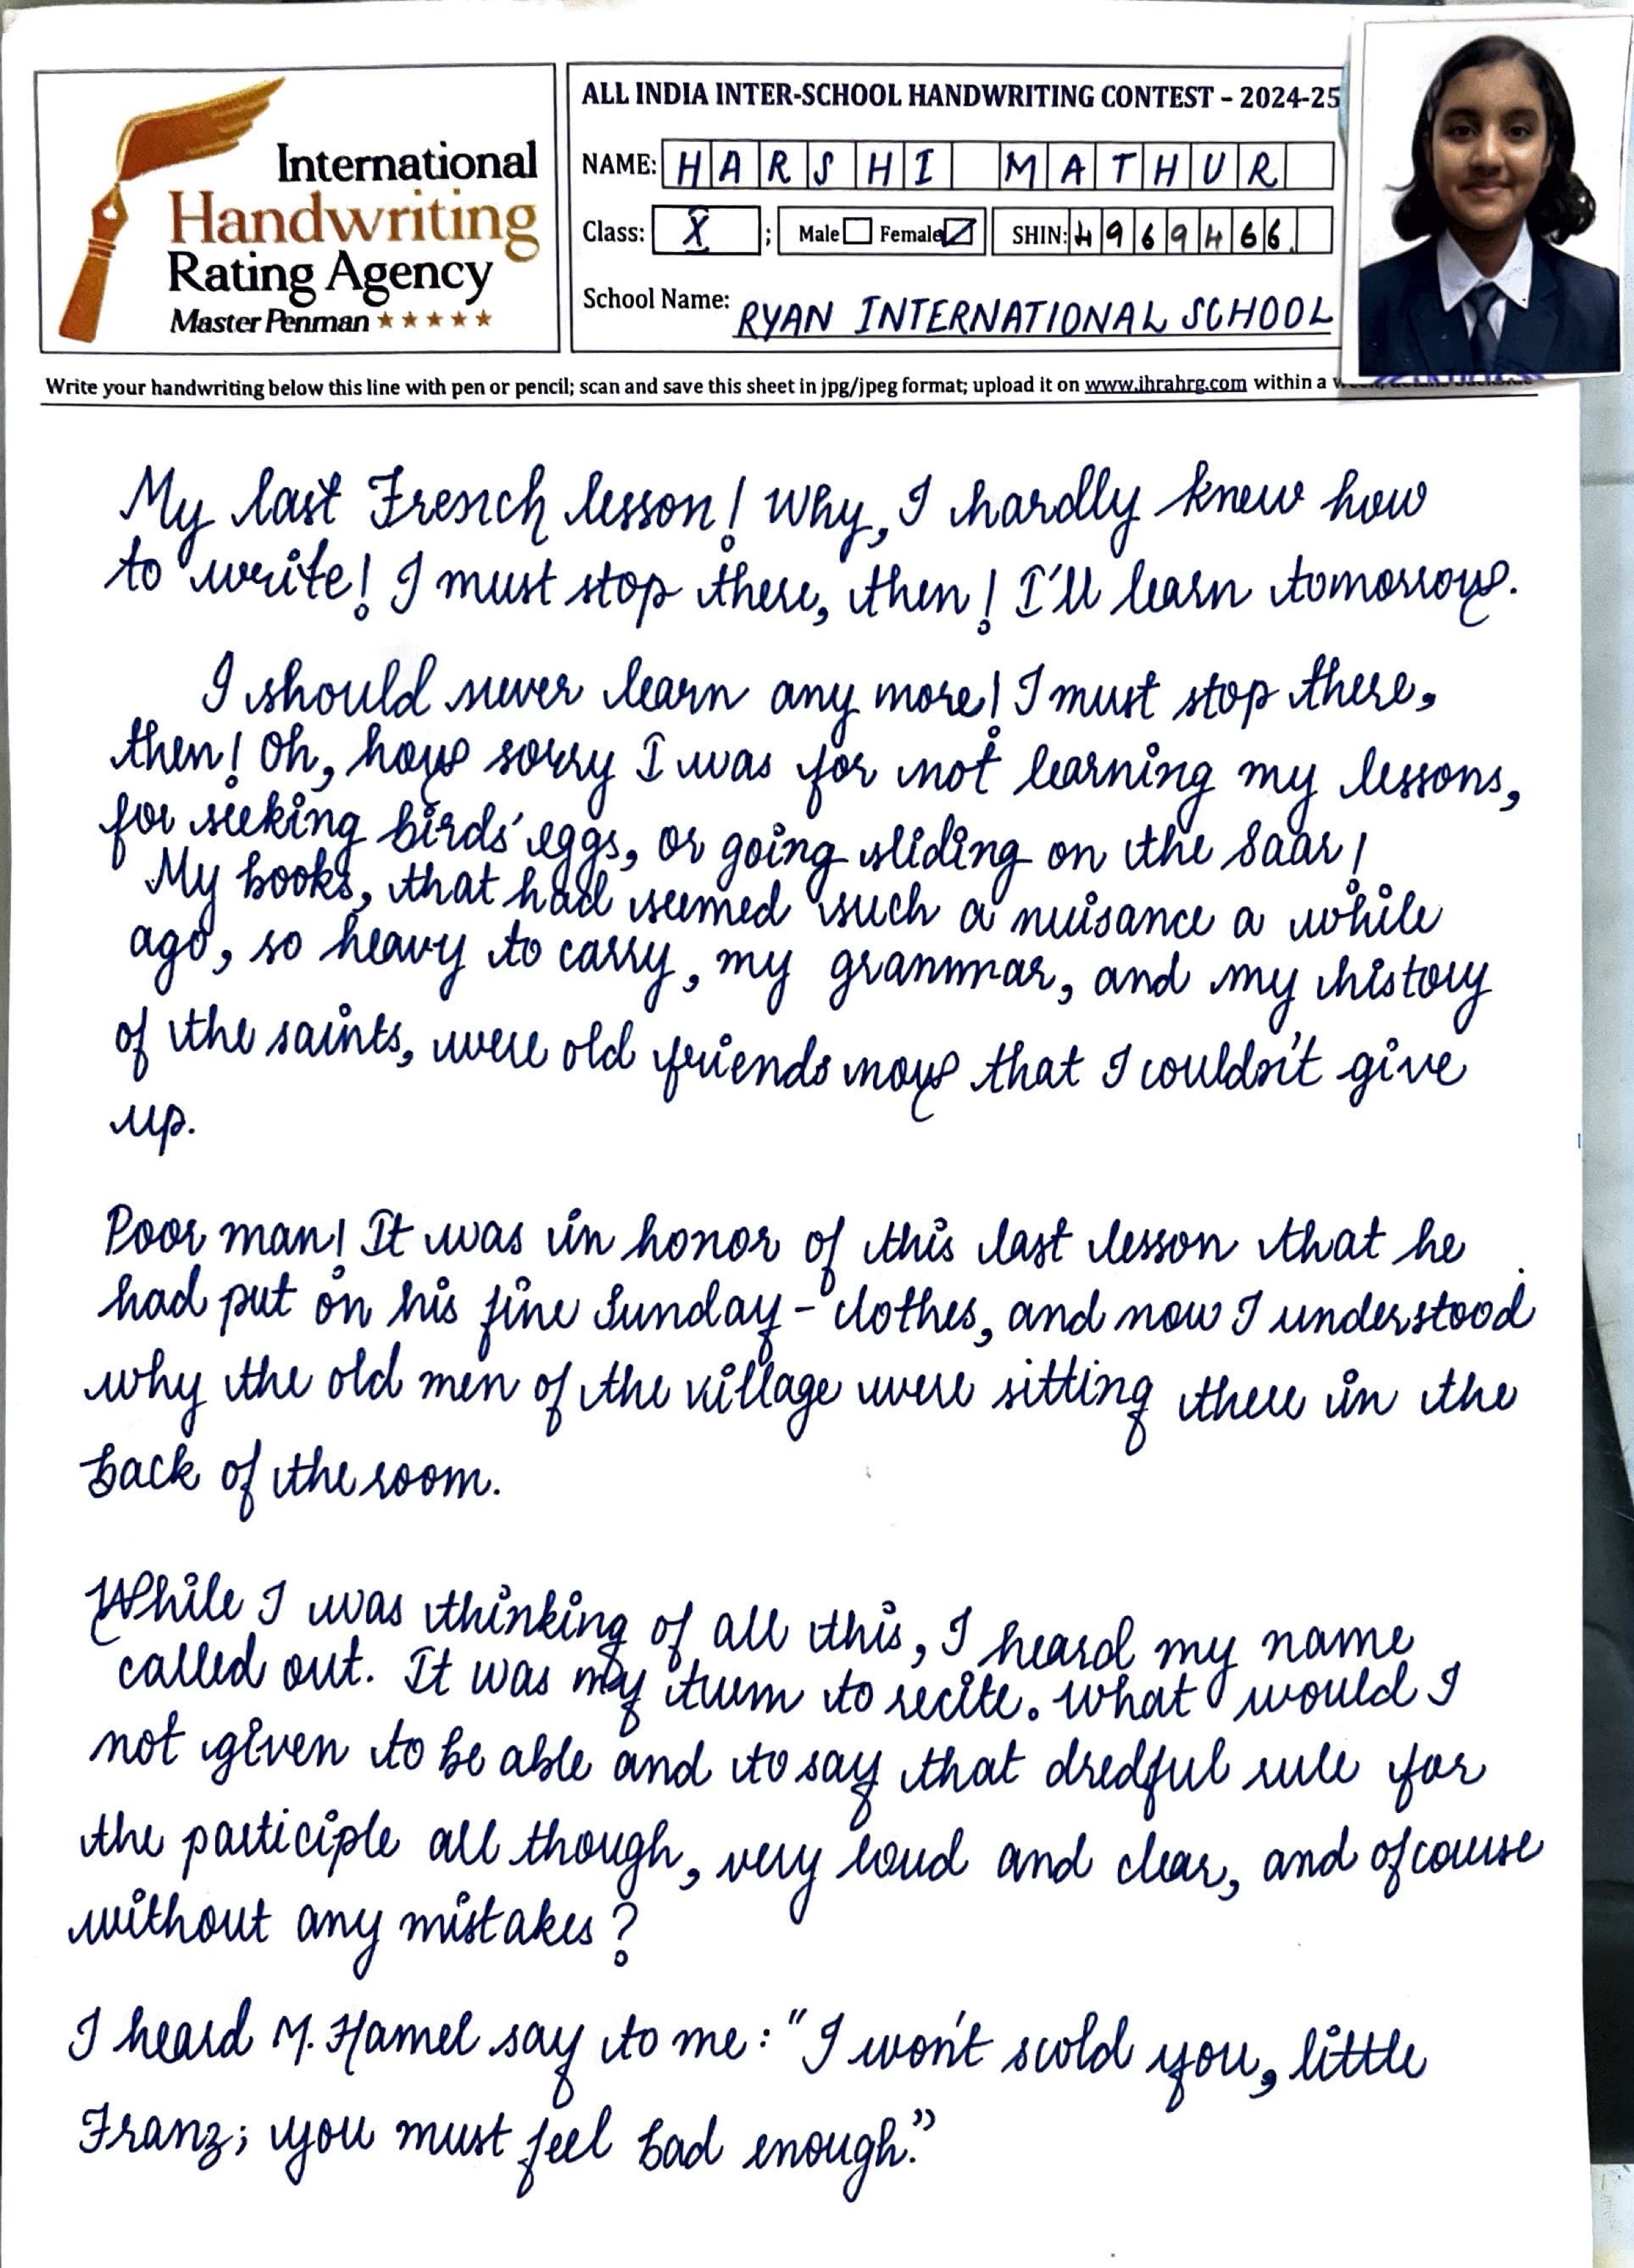 International
Handwriting
Rating Agency
Master Penman ★★★★★
ALL INDIA INTER-SCHOOL HANDWRITING CONTEST – 2024-25
NAME: HARSHI MATHUR
Class: X ; Male Female SHIN: 4969466.
School Name: RYAN INTERNATIONAL SCHOOL
Write your handwriting below this line with pen or pencil; scan and save this sheet in jpg/jpeg format; upload it on www.ihrahrg.com within a
My last French lesson! Why, I hardly knew how
to write! I must stop there, then! I'll learn tomorrow.
I should never learn any more! I must stop there,
then! Oh, how sorry I was for not learning my lessons,
for seeking birds' eggs, or going sliding on the Saar!
My books, that had seemed such a nuisance a while
ago, so heavy to carry, my grammar, and my history
of the saints, were old friends now that I couldn't give
up.
Poor man! It was in honor of this last lesson that he
had put on his fine Sunday-clothes, and now I understood
why the old men of the village were sitting there in the
back of the room.
While I was thinking of all this, I heard my name
called out. It was my turn to recite. What would I
not given to be able and to say that dredful rule for
the participle all though, very loud and clear, and ofcourse
without any mistakes?
I heard M. Hamel say to me: "I won't scold you, little
Franz; you must feel bad enough."